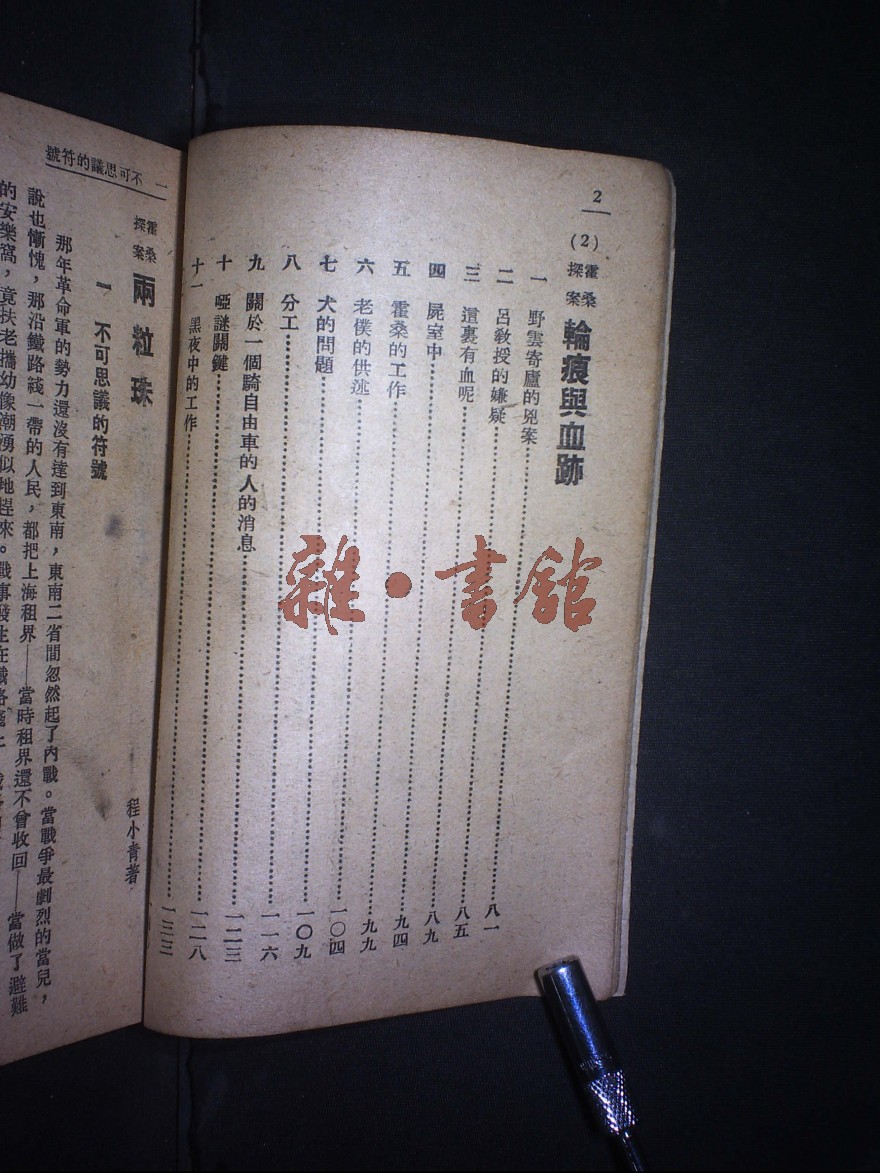 2
(2) 霍桑探案 輪痕與血跡
一 野雲寄廬的兇案……八一
二 呂教授的嫌疑……八五
三 這裏有血呢……八九
四 屍室中……九四
五 霍桑的工作……九九
六 老僕的供述……一〇四
七 犬的問題……一〇九
八 分工……一一六
九 關於一個騎自由車的人的消息……一二三
十 啞謎關鍵……一二八
十一 黑夜中的工作……一三三
雜·書館
一 不可思議的符號
霍桑探案 兩粒珠
程小青著
一 不可思議的符號
那年革命軍的勢力還沒有達到東南，東南二省間忽然起了內戰。當戰爭最劇烈的當兒，
說也慚愧，那沿鐵路綫一帶的人民，都把上海租界——當時租界還不會收回——當做了避難
的安樂窩，竟扶老攜幼像潮湧似地趕來。戰事發生在鐵路綫上